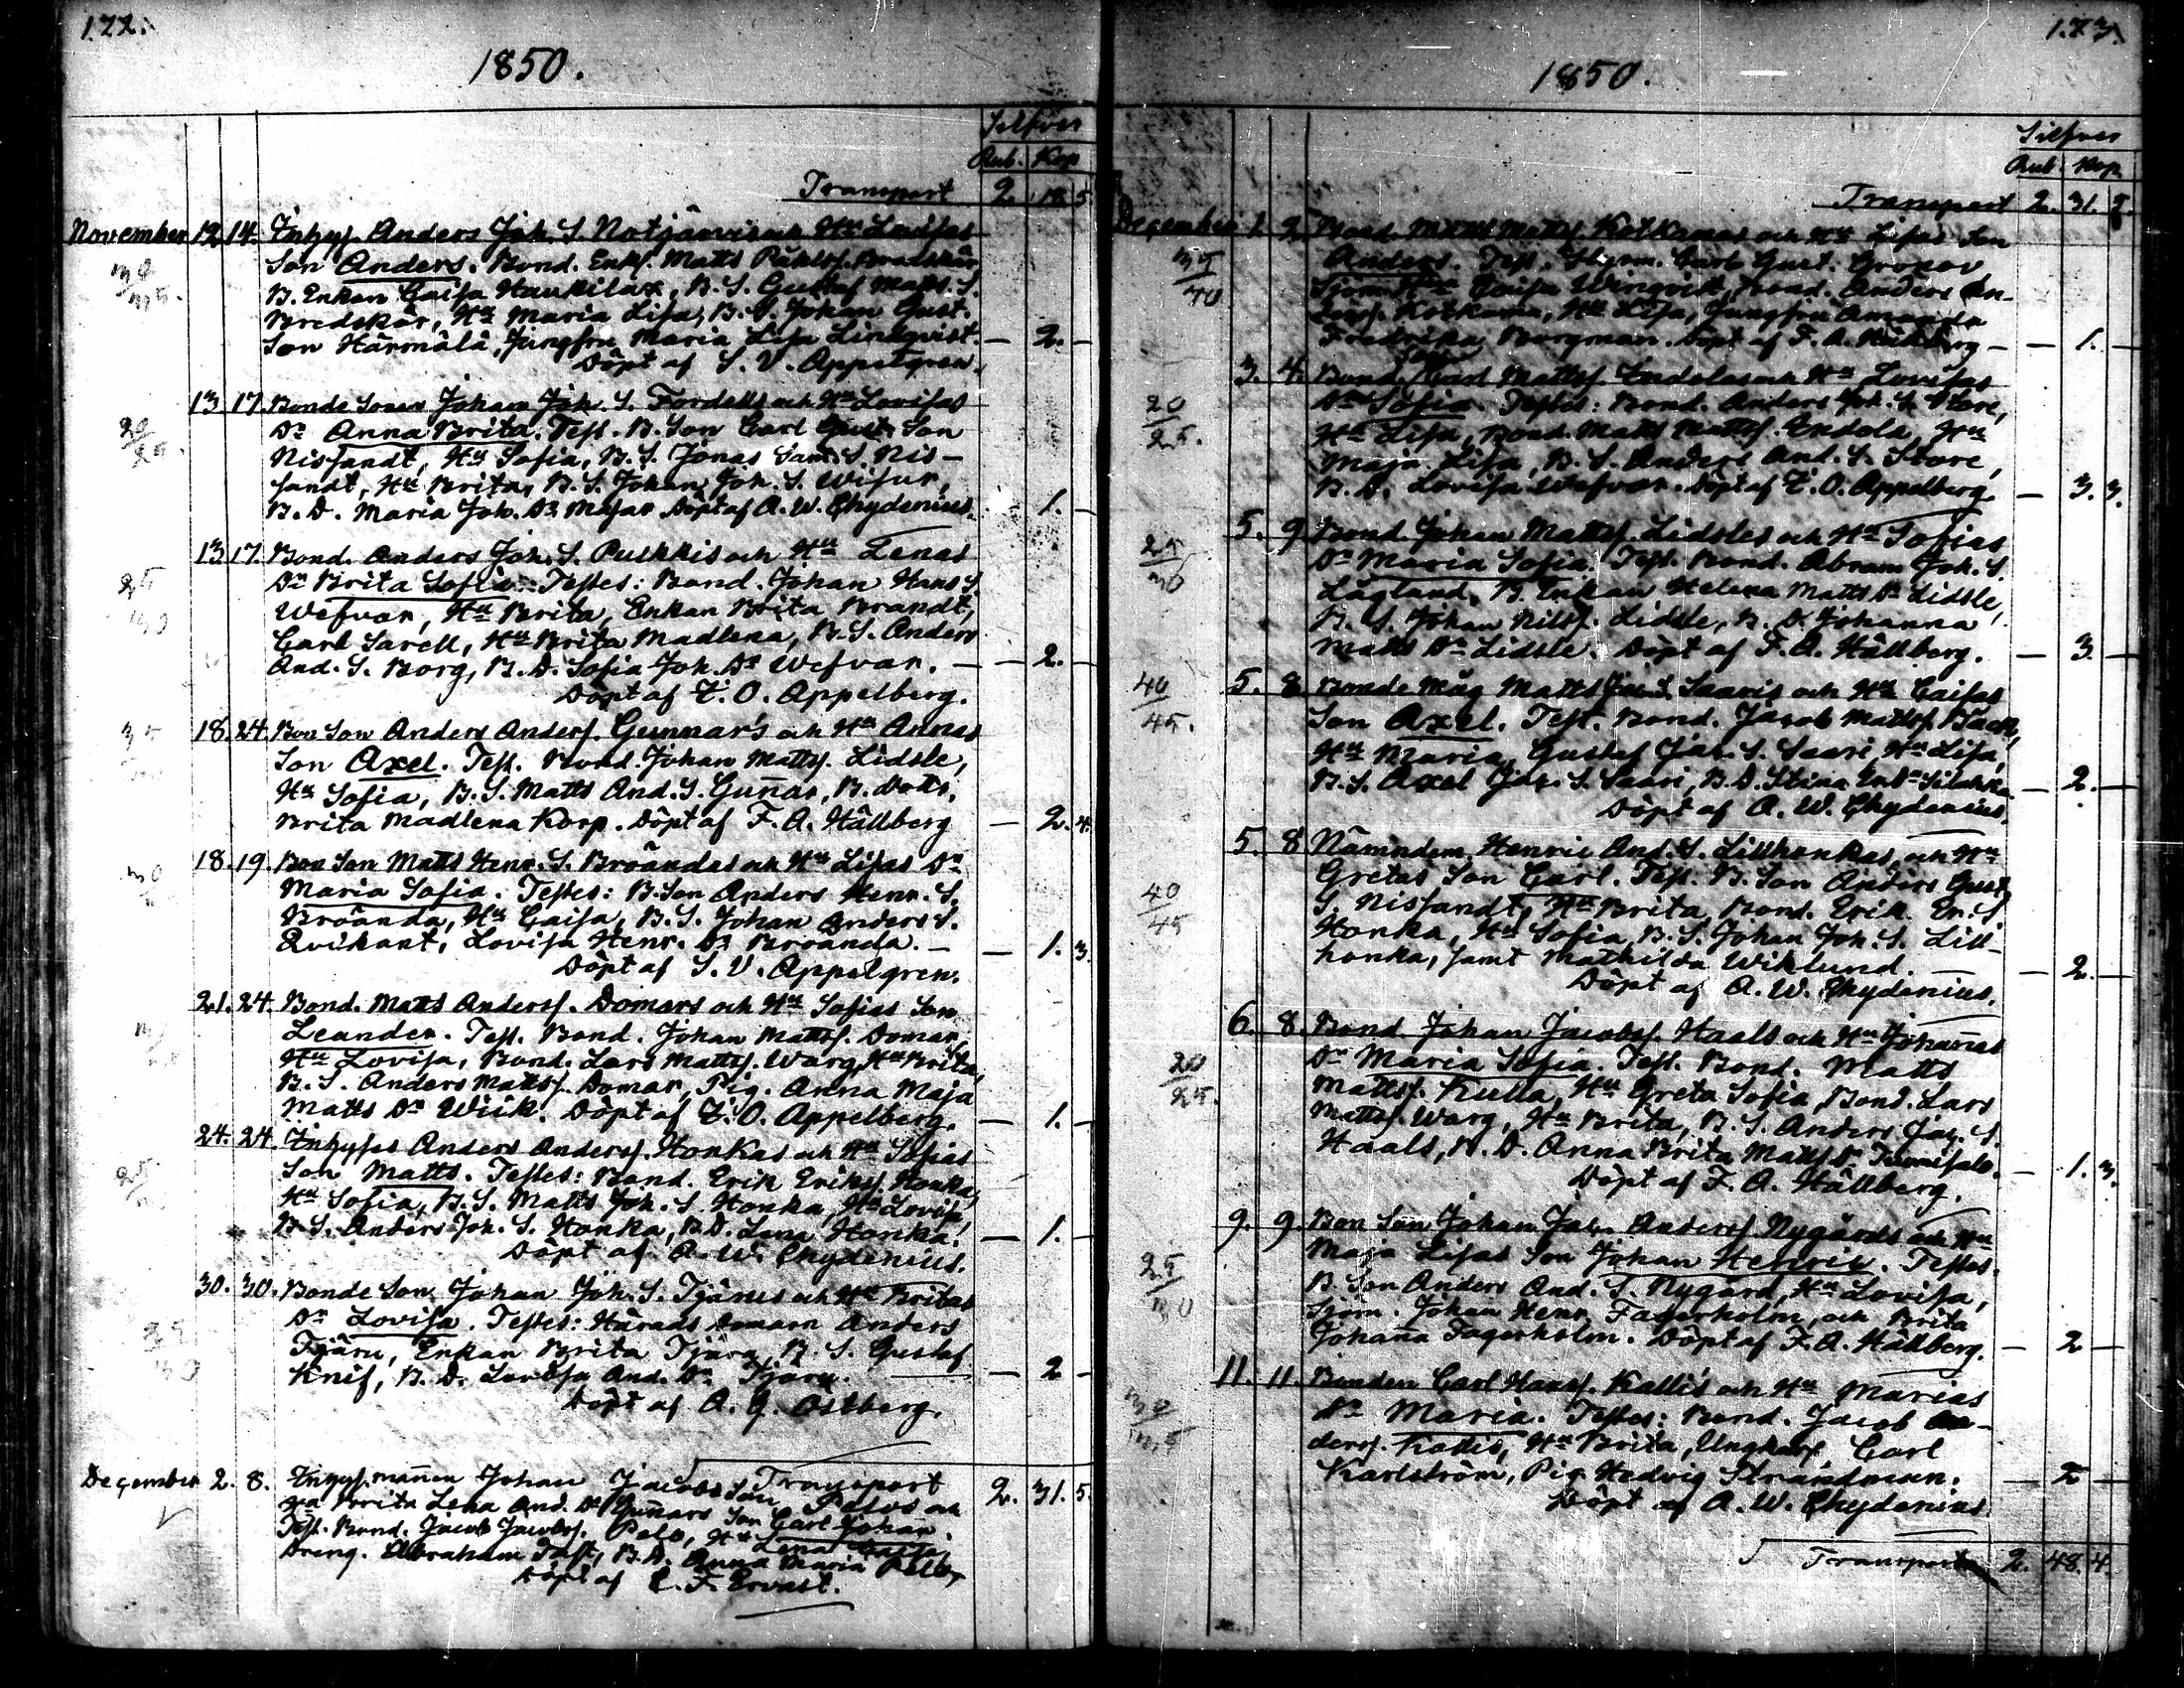 122.
1850.
Silfver
Rub. Kop
Transport 2. 18 5
November 12 14. Inhys. Anders Joh. S. Notjärvis och Hu Lovisas
Son Anders. Bond. Enkl. Matts
B. Enkan Caisa Haukilax, B. S. Gustaf Matts. S.
Bredskär, Hu Maria Lisa, B. S. Johan Gust.
Son Härmälä, Jungfru Maria Lisa Lindqvist. — 2. —
Döpt af S. V. Appelgren.
13 17. Bonde Sonen Johan Joh. S. Fordells och Hu Lovisas
Dr Anna Brita. Test. B. Son Carl Gust. Son
Nissandt, Hu Sofia, B. S. Jonas Sam. S. Nis-
sandt, Hu Brita, B. S. Johan Joh. S. Wisur,
B. D. Maria Joh. Dr Majar. Döpt af A. W. Chydenius. 1. —
20
25.
13 17. Bond. Anders Joh. S. Pulkkis och Hu Lenas
Dr Brita Sofia. Testes: Bond. Johan Hans S.
Wefvar, Hu Brita, Enkan Brita Brandt,
Carl Sarell, Hu Brita Madlena, B. S. Anders
And. S. Borg, B. D. Sofia Joh. Dr Wefvar. — — 2. —
Döpt af T. O. Appelberg.
25
30
18. 24. Bon Son Anders Anders. Gunnar's och Hu Annas
Son Axel. Test. Bond. Johan Matts. Lidsle,
Hu Sofia, B. S. Matts And. S. Gun̄ar, B. Dottr.
Brita Madlena Korp. Döpt af F. A. Hällberg — 2. 4.
18. 19. Bon Son Matts Henr. S. Bröändas och Hu Lisas Dr
Maria Sofia. Testes: B. Son Anders Henr. S.
Bröända, Hu Caisa, B. S. Johan Anders S.
Qvikant, Lovisa Henr. Dr Bröända. — — 1. 3.
Döpt af S. V. Appelgren.
21. 24. Bond. Matts Anderss. Domars och Hu Sofias Son
Leander. Test. Bond. Johan Mattss. Domar,
Hu Lovisa, Bond. Lars Mattss. Warg, Hu Brita,
B. S. Anders Mattss. Domar, Pig. Anna Maja
Matts Dr Wiik. Döpt af T. O. Appelberg. — 1. —
24. 24. Inhyses Anders Anderss. Honkas och Hu Sofias
Son Matts. Testes: Bond. Erik Eriks. Honka,
Hu Sofia, B. S. Matts Joh. S. Honka, Hu Lovisa,
B. S. Anders Joh. S. Honka, B. D. Lena Honka. — 1. —
Döpt af A. W. Chydenius.
25
30. 30. Bonde Son Johan Joh. S. Tjärus och Hu Britas
Dr Lovisa. Testes: Härads Domarn Anders
Tjäru, Enkan Brita Tjäru, B. S. Gustaf
Knif, B. D. Lovisa And. Dr Tjäru. — — 2 —
Döpt af A. G. Östberg.
Transport 2. 31. 5.
December 2. 8. Inhys. man̄en Johan Jacobs Son Palos och
Hu Brita Lena And. Dr Gun̄ars Son Carl Johan.
Test. Bond. Jacob Jacobs. Palo, Hu Lena
Dreng. Abraham Tast, B. D. Anna Maria Palo,
Döpt af C. F. Ervast.
173.
1850.
Silfver
Rub. Kop.
Transport 2. 31. 5.
December 1. 2. Bond. Matts Matts. Kotkamas och Hu Lisas Son
Anders. Test. Styrm. Carl Gust.
Caisa Winqvist, Bond. Anders An-
derss. Kotkama, Hu Lisa, Jungfru Amanda
Fredrika Borgman. Döpt af F. A. Hällberg — — 1. —
35
40
3. 4. Bond. Son Karl Mattss. Endolas och Hu Lovisas
Dr Sofia. Testes: Bond. Anders Joh. S. Store,
Hu Lisa, Bond. Matts Mattss. Endola, Hu
Maja Lisa, B. S. Anders And. S. Store,
B. D. Lovisa Wefvar. Döpt af T. O. Appelberg. — 3. 3.
20
25.
5. 9. Bond. Johan Mattss. Lidsles och Hu Sofias
Dr Maria Sofia. Test. Bond. Abram Joh. S.
Lågland, B. Enkan Helena Matts Dr Lidsle,
B. S. Johan Nilss. Lidsle, B. D. Johanna
Matts Dr Lidsle. Döpt af F. A. Hällberg. — 3. —
25
30
5. 8. Bonde Måg Matts Jac. S. Saaris och Hu Caisas
Son Axel. Test. Bond. Jacob Mattss. Back,
Hu Maria, Gustaf Jac. S. Saari, Hu Lisa,
B. S. Axel Jac. S. Saari, B. D. Stina — 2. —
Döpt af A. W. Chydenius.
40
45.
5. 8. Nämndem. Henric And. S. Lillhonkas och Hu
Gretas Son Carl. Test. B. Son Anders Gust.
S. Nissandt, Hu Brita, Bond. Erik Er. S.
Honka, Hu Sofia, B. S. Johan Joh. S. Lill-
honka, samt Mathilda Wiklund. — — 2. —
Döpt af A. W. Chydenius.
40
45
6. 8. Bond. Johan Jacobss. Haals och Hu Johan̄as
Dr Maria Sofia. Test. Bond. Matts
Mattss. Kulla, Hu Greta Sofia, Bond. Lars
Mattss. Warg, Hu Brita, B. S. Anders Jac. S.
Haals, B. D. Anna Brita Matts Dr — 1. 3.
Döpt af F. A. Hällberg.
20
25.
9. 9. Bon Son Johan Jac. Anderss Nygårds och Hu
Maja Lisas Son Johan Henric. Testes.
B. Son Anders And. S. Nygård, Hu Lovisa,
Sjöm. Johan Henr. Fagerholm, och Brita
Johan̄a Fagerholm. Döpt af F. A. Hällberg. — 2 —
25
30
11. 11. Bonden Carl Hanss. Kallis och Hu Marias
Dr Maria. Testes: Bond. Jacob An-
derss. Kallis, Hu Brita, Ungkarl Carl
Karlström, Pig. Hedvig Strandman. — 2 —
Döpt af A. W. Chydenius.
30
35
Transport 2. 48. 4.